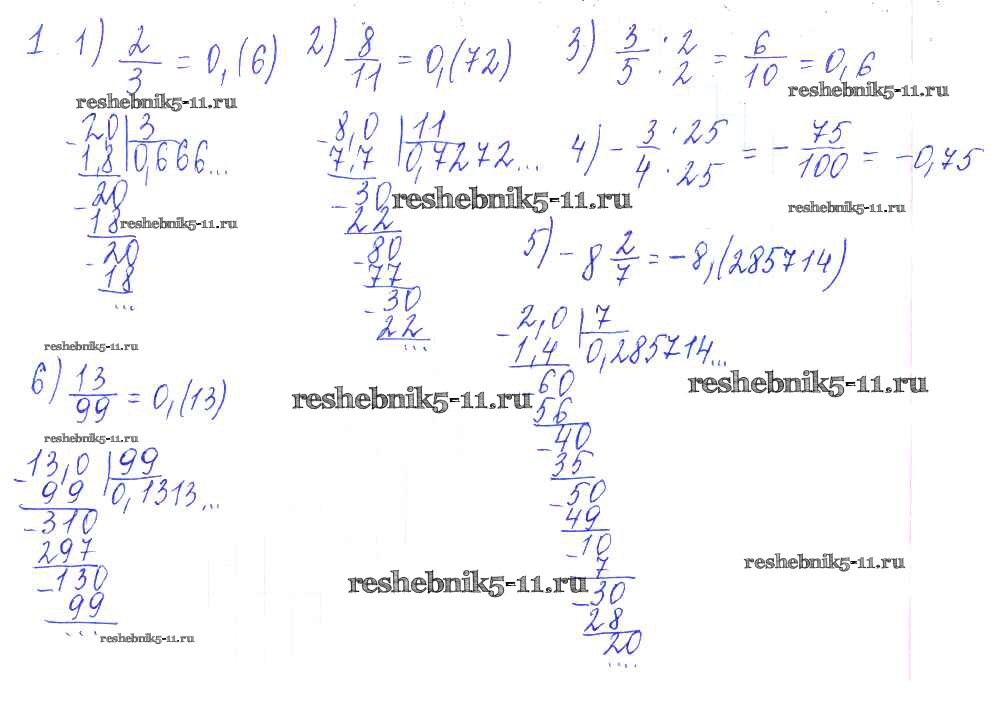 1 1) 2/3 = 0,(6)
reshebnik5-11.ru
-20 | 3
1,8 0,666...
-20
18 reshebnik5-11.ru
-20
18
...
2) 8/11 = 0,(72)
-8,0 | 11
7,7 0,7272...
-30 reshebnik5-11.ru
22
-80
77
-30
22
...
3) 3/5 · 2/2 = 6/10 = 0,6
reshebnik5-11.ru
4) - 3·25/4·25 = - 75/100 = -0,75
reshebnik5-11.ru
5) -8 2/7 = -8,(285714)
-2,0 | 7
1,4 0,285714...
60 reshebnik5-11.ru
56
-40
35
-50
49
-10
7
-30
28
20
....
reshebnik5-11.ru
6) 13/99 = 0,(13)
reshebnik5-11.ru
reshebnik5-11.ru
-13,0 | 99
99 0,1313...
-310
297
-130
99
... reshebnik5-11.ru
reshebnik5-11.ru
reshebnik5-11.ru